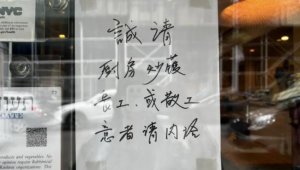 NYC
誠请
厨房炒镬
長工.或散工
意者请内洽